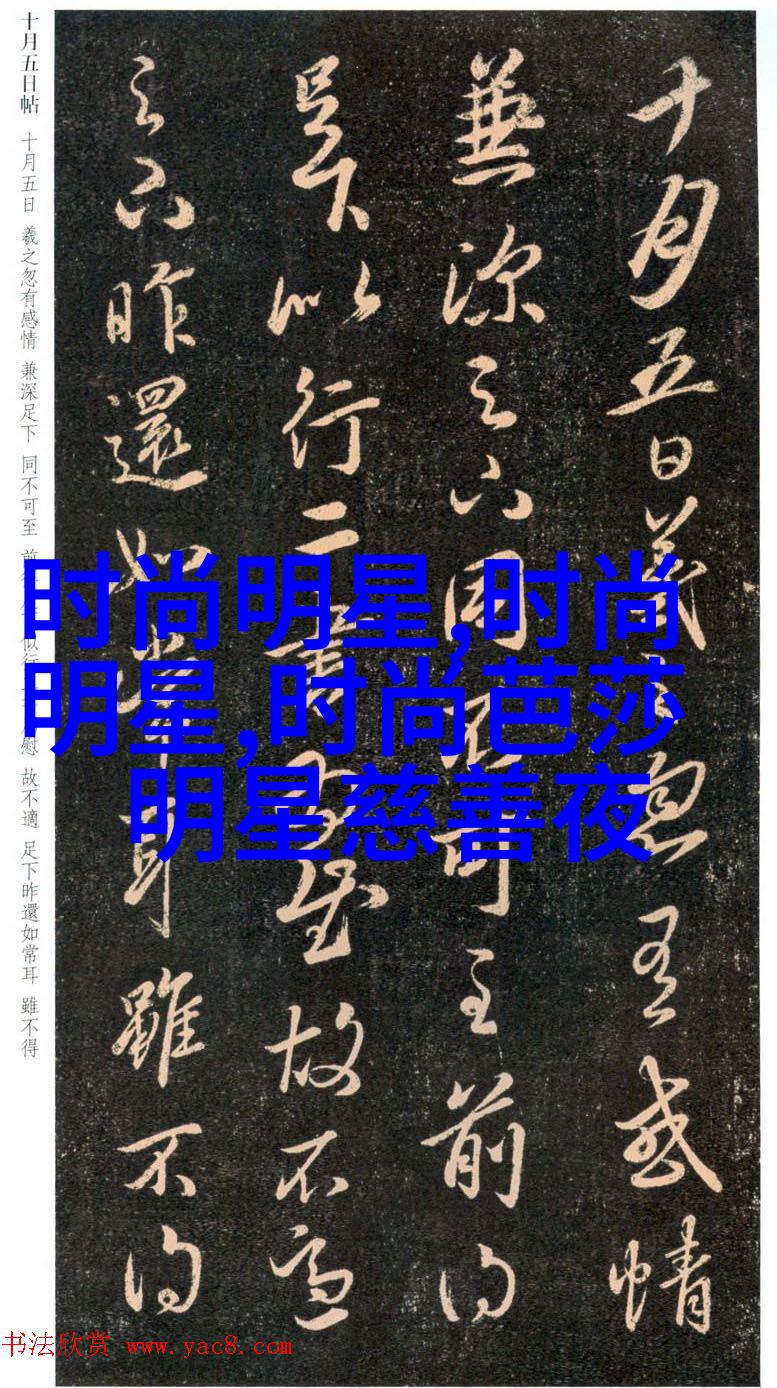 十月五日羲之忽有感情
兼深足下同不可至前得
以行二書慰故不適
足下昨還如常耳雖不得
十月五日帖 十月五日 羲之忽有感情 兼深足下 同不可至 前 似行 慰 故不適 足下昨還如常耳 雖不得
时尚明星,时尚
明星,时尚芭莎
明星慈善夜
书法欣赏 www.yac8.com